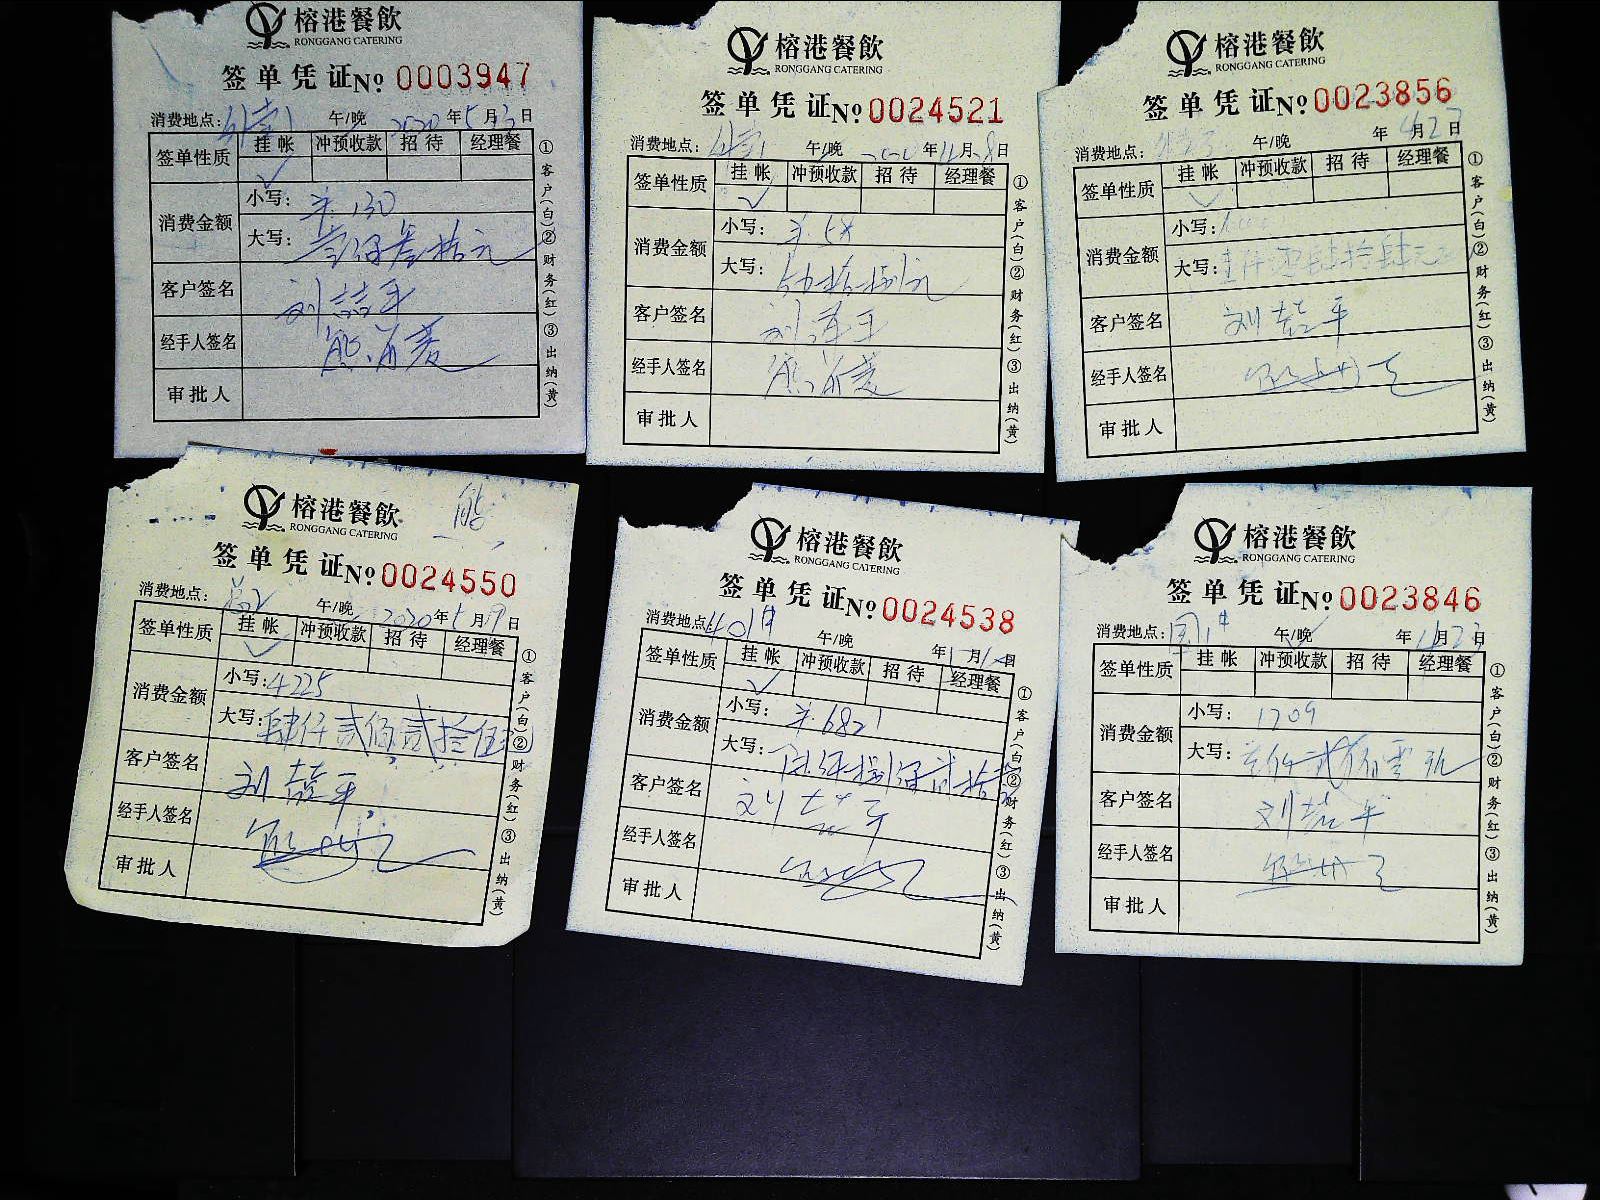 榕港餐飲
RONGGANG CATERING
签单凭证 No 0003947
消费地点：外卖1 午/晚 2020年5月3日
签单性质 挂帐 冲预收款 招待 经理餐
√
消费金额 小写：¥130
大写：壹佰叁拾元
客户签名 刘喆平
经手人签名
审批人
①客户(白)②财务(红)③出纳(黄)
榕港餐飲
RONGGANG CATERING
签单凭证 No 0024521
消费地点： 午/晚 年 月 日
签单性质 挂帐 冲预收款 招待 经理餐
√
消费金额 小写：
大写：
客户签名 刘喆平
经手人签名
审批人
①客户(白)②财务(红)③出纳(黄)
榕港餐飲
RONGGANG CATERING
签单凭证 No 0023856
消费地点： 午/晚 年4月27日
签单性质 挂帐 冲预收款 招待 经理餐
√
消费金额 小写：
大写：壹仟零肆拾肆元
客户签名 刘喆平
经手人签名
审批人
①客户(白)②财务(红)③出纳(黄)
榕港餐飲
RONGGANG CATERING
熊
签单凭证 No 0024550
消费地点： 午/晚 2020年5月19日
签单性质 挂帐 冲预收款 招待 经理餐
√
消费金额 小写：4225
大写：肆仟贰佰贰拾伍元
客户签名 刘喆平
经手人签名
审批人
①客户(白)②财务(红)③出纳(黄)
榕港餐飲
RONGGANG CATERING
签单凭证 No 0024538
消费地点： 午/晚 年1月 日
签单性质 挂帐 冲预收款 招待 经理餐
√
消费金额 小写：¥6821
大写：陆仟捌佰贰拾壹
客户签名 刘喆平
经手人签名
审批人
①客户(白)②财务(红)③出纳(黄)
榕港餐飲
RONGGANG CATERING
签单凭证 No 0023846
消费地点： 午/晚 年 月23日
签单性质 挂帐 冲预收款 招待 经理餐
消费金额 小写：1209
大写：壹仟贰佰零玖
客户签名 刘喆平
经手人签名
审批人
①客户(白)②财务(红)③出纳(黄)